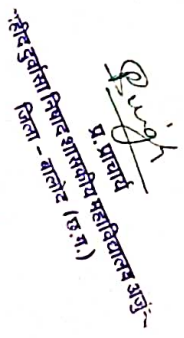 Singh
प्र. प्राचार्य
-हीद दुर्वासा निषाद शासकीय महाविद्यालय अर्जु-
जिला - बालोद (छ.ग.)